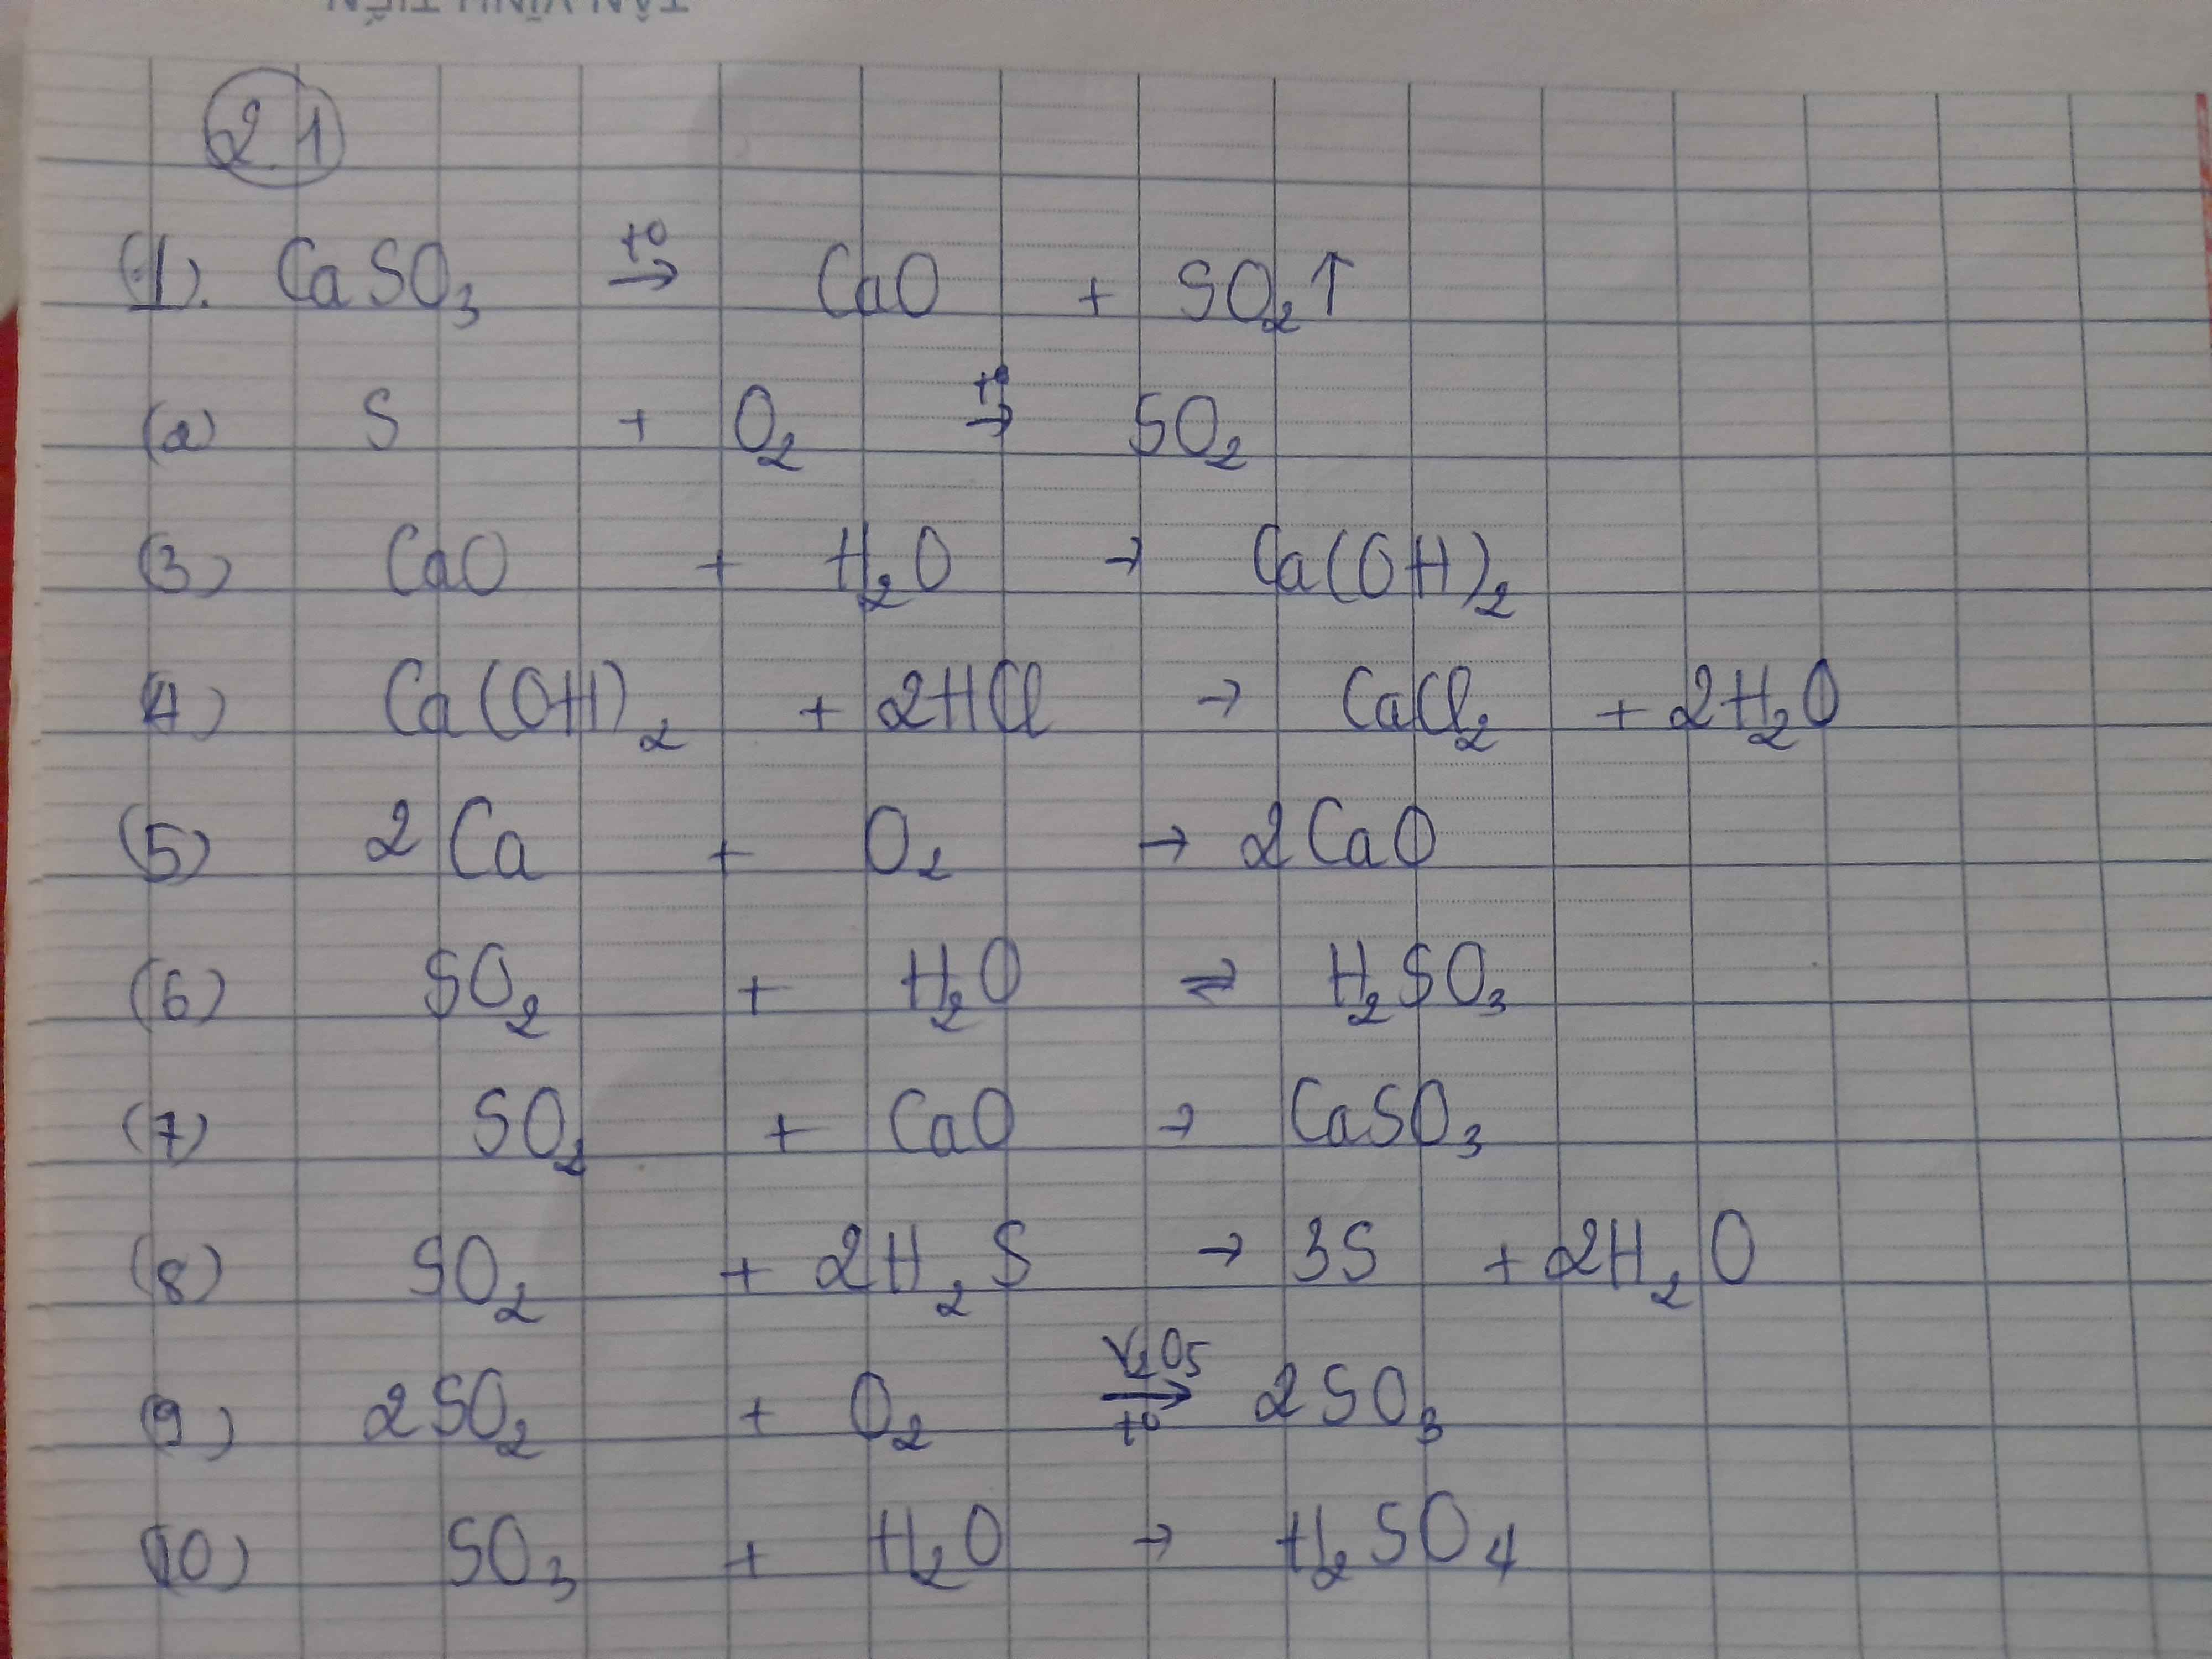 21
(1). CaSO₃ →(t°) CaO + SO₂↑
(2) S + O₂ →(t°) SO₂
(3) CaO + H₂O → Ca(OH)₂
(4) Ca(OH)₂ + 2HCl → CaCl₂ + 2H₂O
(5) 2Ca + O₂ → 2CaO
(6) SO₂ + H₂O ⇌ H₂SO₃
(7) SO₂ + CaO → CaSO₃
(8) SO₂ + 2H₂S → 3S + 2H₂O
(9) 2SO₂ + O₂ →(V₂O₅, t°) 2SO₃
(10) SO₃ + H₂O → H₂SO₄